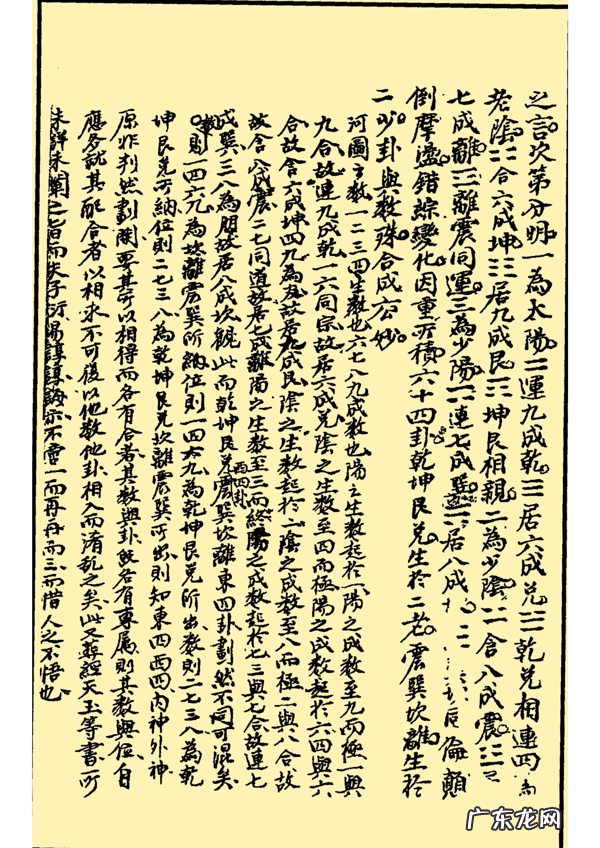 之言次第分明一為太陽⚌連九成乾☰居六成兌☱乾兌相連四為
老陰⚏合六成坤☷居九成艮☶坤艮相親二為少陰⚍含八成震☳
七成離☲離震同運三為少陽⚎連七成巽☴居八成 倫顛
倒摩盪錯綜變化因重所積六十四卦乾坤艮兌生於二老震巽坎離生於
二少卦與数殊合成玄妙
河圖之数一二三四生数也六七八九成数也陽之生数起於一陽之成数至九而極一與
九合故連九成乾一六同宗故居六成兌陰之生数至四而極陽之成数起於六四與六
合故含六成坤四九為友故居九成艮陰之生数起於二陰之成数至八而極二與八合故
故含八成震二七同道故居七成離陽之生数至三而終陽之成数起於七三與七合故連七
成巽三八為朋故居八成坎觀此而乾坤艮兌西四卦震巽坎離東四卦劃然不同可混矣
則一四六九為坎離震巽所納位則一四六九為乾坤艮兌所出数則二七三八為乾
坤艮兌所納位則二七三八為乾坤艮兌坎離震巽所出則知東四西四內神外神
原非判然劃開要其可以相得而各有合者其数與卦既各有專屬則其数與位自
應各就其配合者以相求不可復以他数他卦相入而淆乱之矣此又葬經天玉等書所
未詳未闡之旨而夫子諄諄誨示不啻一而再再而三而惜人之不悟也
广东龙网